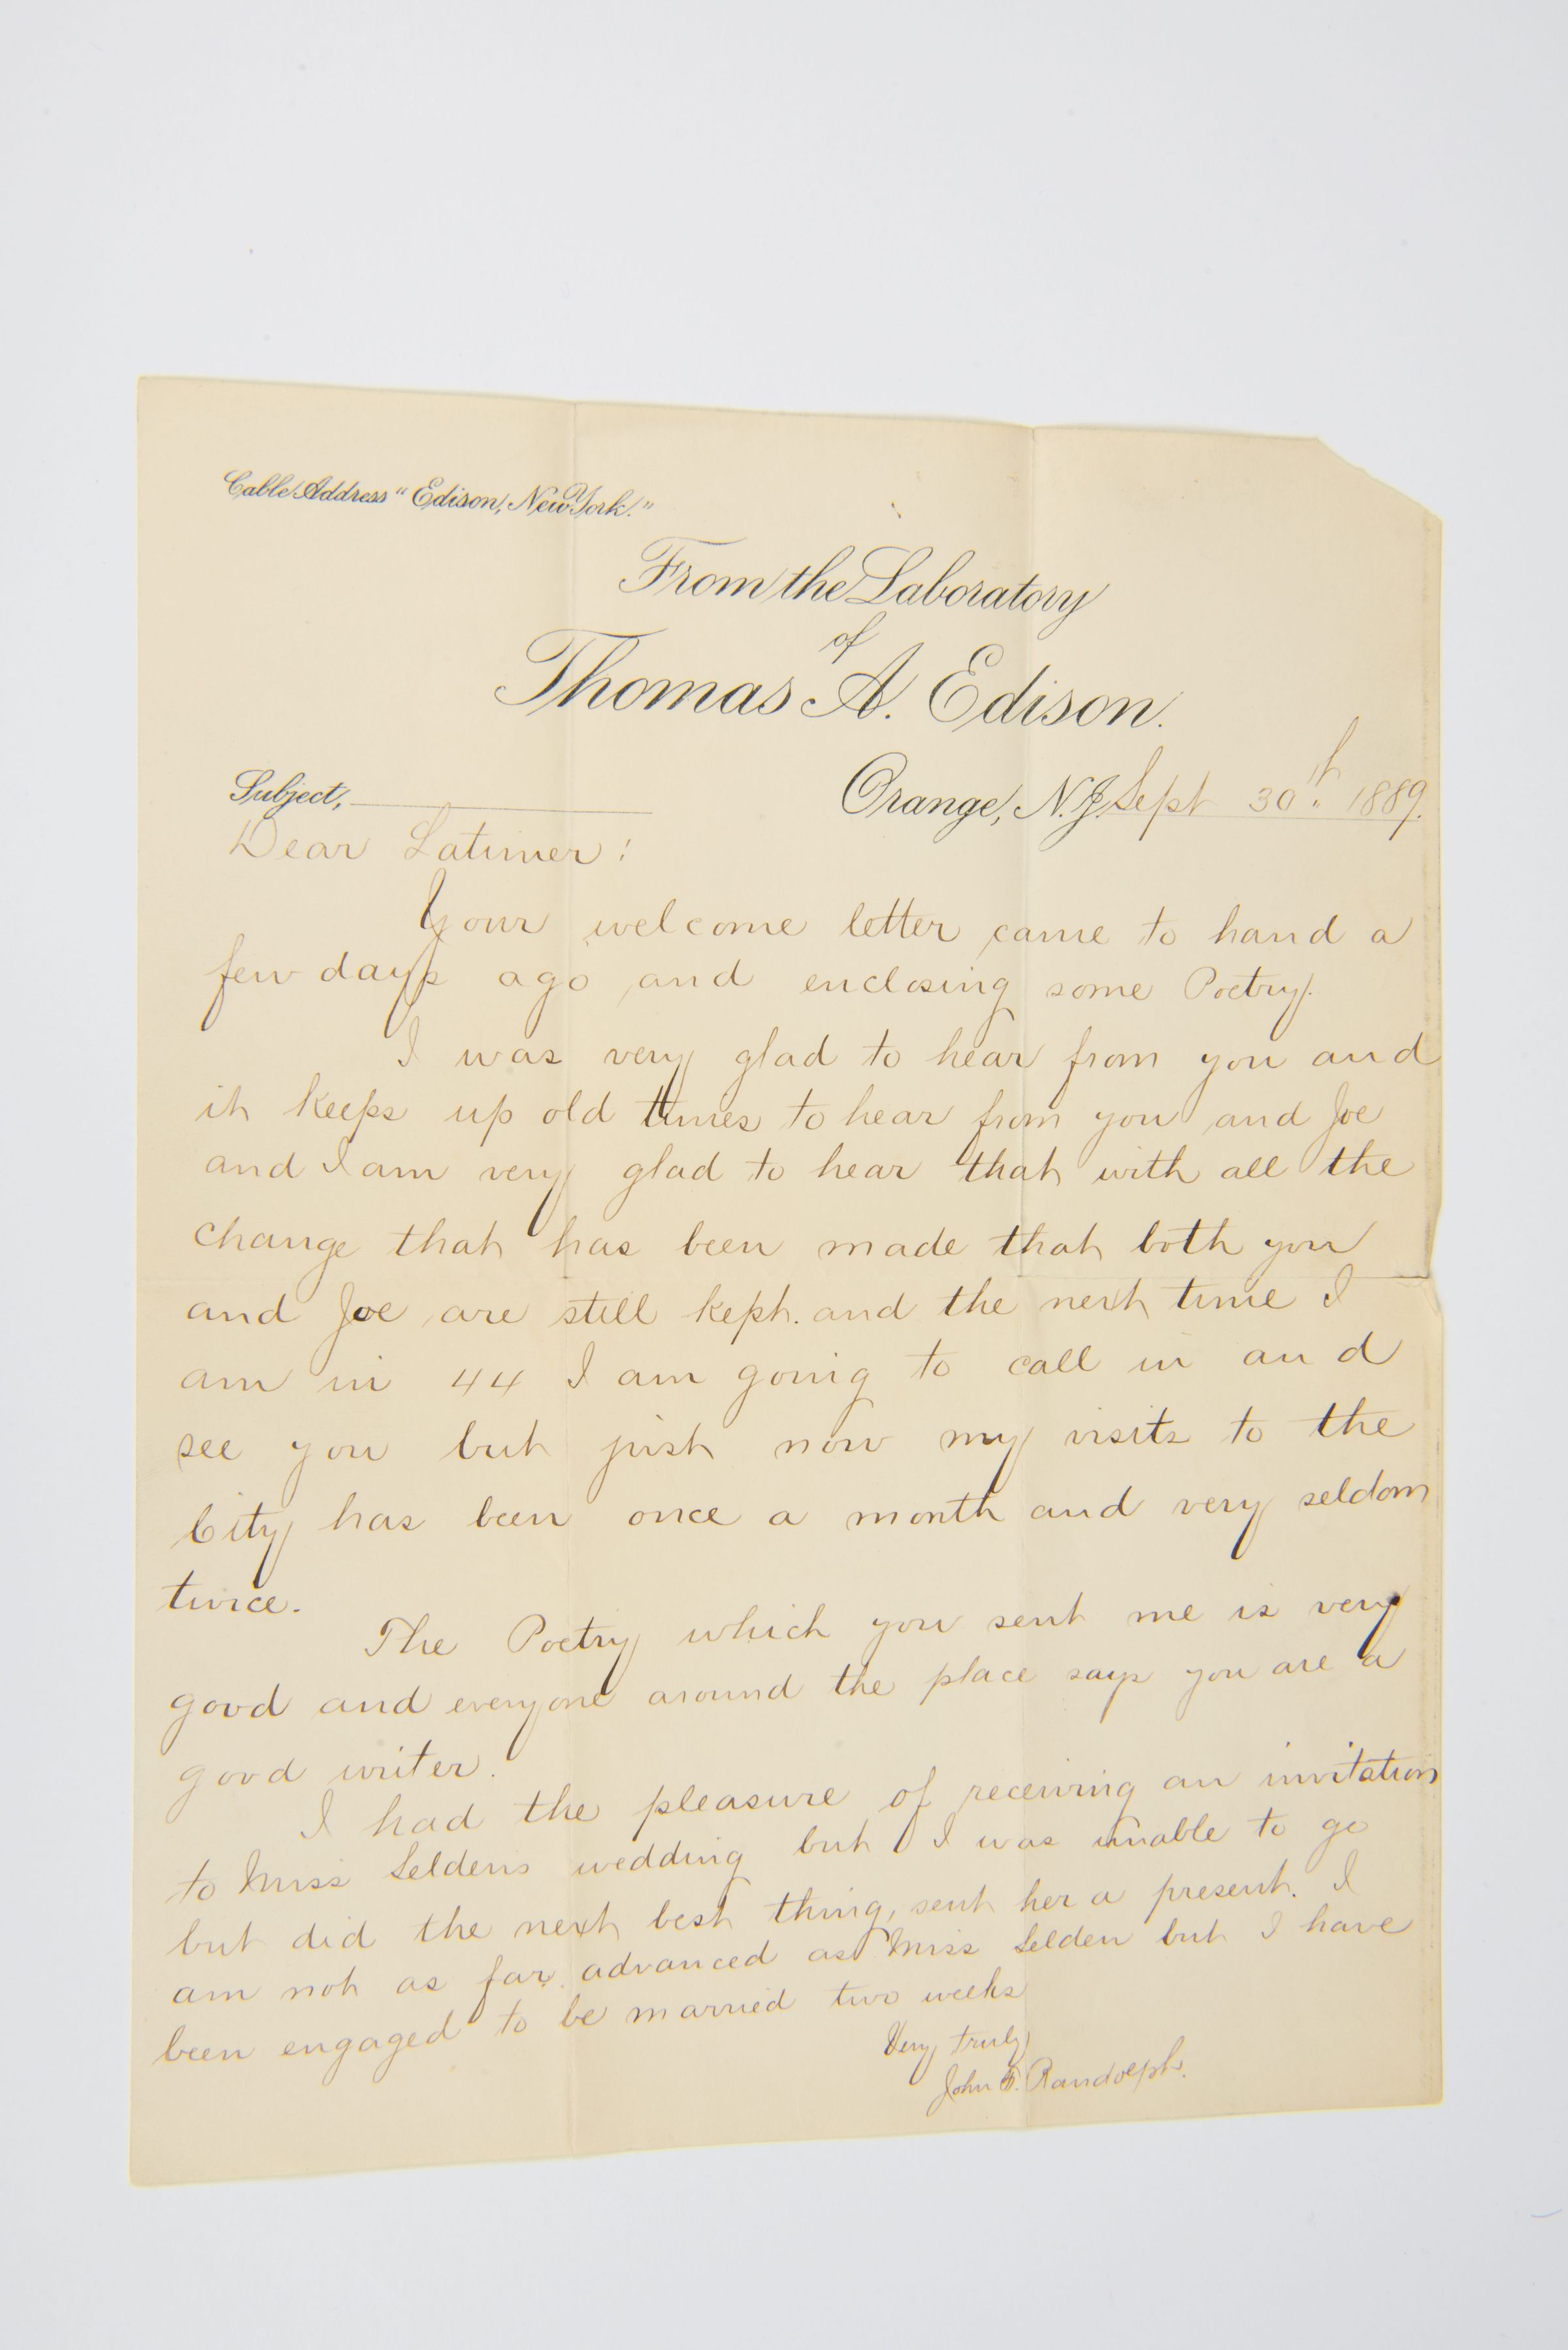 Cable Address "Edison, New York."
From the Laboratory
of
Thomas A. Edison.
Subject,
Orange, N.J. Sept 30th. 1889.
Dear Latimer!
Your welcome letter came to hand a
few days ago and enclosing some Poetry.
I was very glad to hear from you and
it keeps up old times to hear from you and Joe
and I am very glad to hear that with all the
change that has been made that both you
and Joe are still kept. and the next time I
am in 44 I am going to call in and
see you but just now my visits to the
City has been once a month and very seldom
twice.
The Poetry which you sent me is very
good and everyone around the place says you are a
good writer.
I had the pleasure of receiving an invitation
to Miss Seldens wedding but I was unable to go
but did the next best thing, sent her a present. I
am not as far advanced as Miss Selden but I have
been engaged to be married two weeks
Very truly
John F. Randolph.